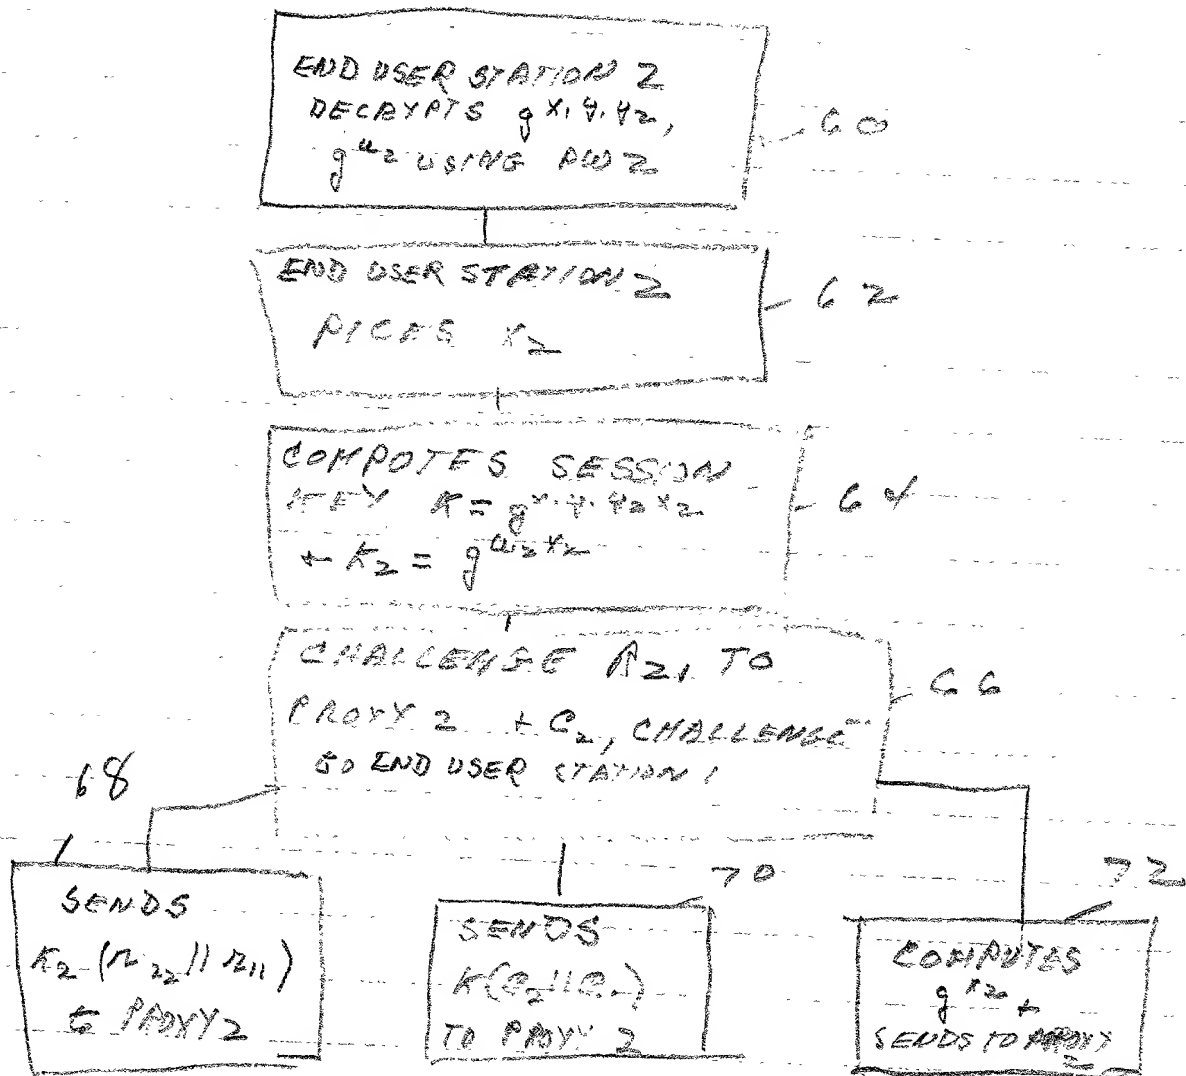 END USER STATION 2
DECRYPTS g x, y, y2,
g u2 USING PW2
60
END USER STATION 2
PICKS x2
62
COMPUTES SESSION
KEY K = g x.y.y2x2
+ K2 = g u2x2
64
CHALLENGE R21 TO
PROXY 2 + C2, CHALLENGE
to END USER STATION 1
66
68
SENDS
K2 (r22 || r11)
to PROXY 2
70
SENDS
K(C2 || C
TO PROXY 2
72
COMPUTES
g x2 +
SENDS TO PROXY
2